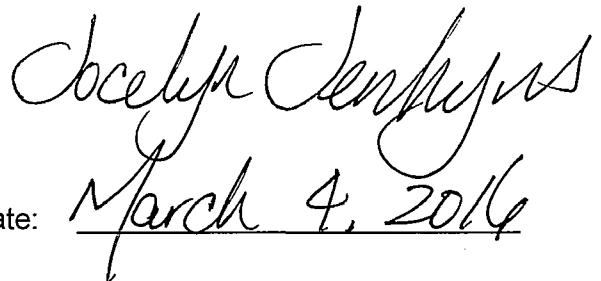 Jocelyn Jenkyns
ate: March 4, 2016